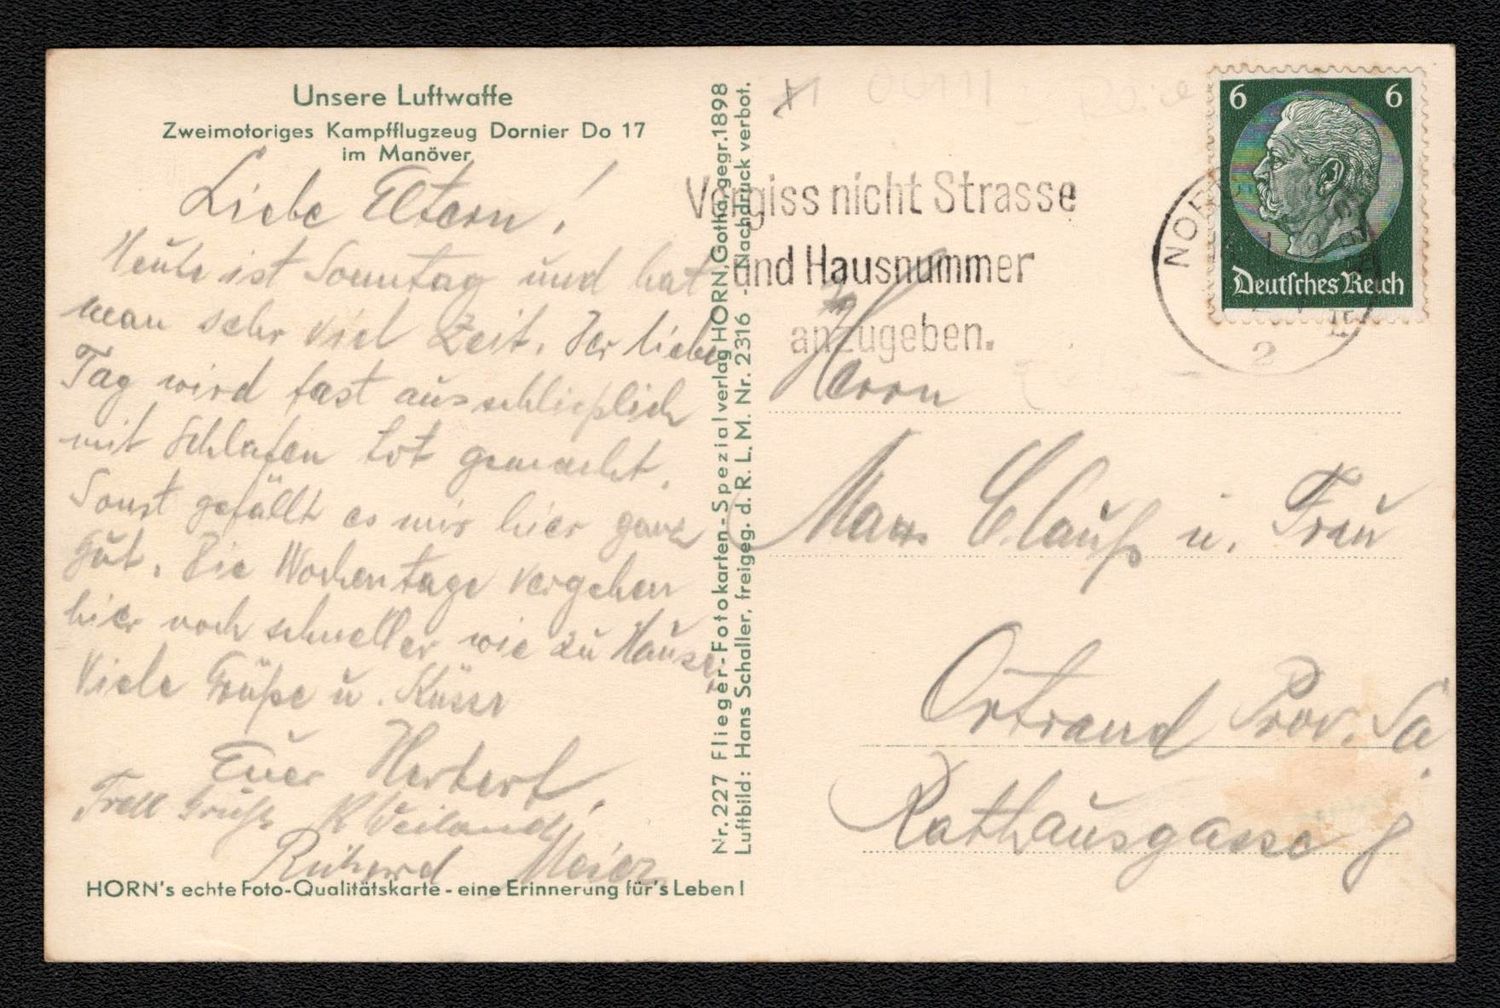 Unsere Luftwaffe
Zweimotoriges Kampfflugzeug Dornier Do 17
im Manöver
Liebe Eltern!
Heute ist Sonntag und hat
man sehr viel Zeit. Der liebe
Tag wird fast ausschließlich
mit Schlafen tot gemacht.
Sonst gefällt es mir hier ganz
gut. Die Wochentage vergehen
hier noch schneller wie zu Hause.
Viele Grüße u. Küsse
Euer Herbert.
Grüße K Weiland
Meier
HORN's echte Foto-Qualitätskarte - eine Erinnerung für's Leben!
Nr. 227 Flieger-Fotokarten-Spezialverlag HORN, Gotha, gegr. 1898
Luftbild: Hans Schaller, freigeg. d. R. L. M. Nr. 2316 - Nachdruck verbot.
Vergiss nicht Strasse
und Hausnummer
anzugeben.
6 6
Deutsches Reich
2
An
Herrn
Max Clauß u. Frau
Ortrand Prov. Sa.
Rathausgasse 8